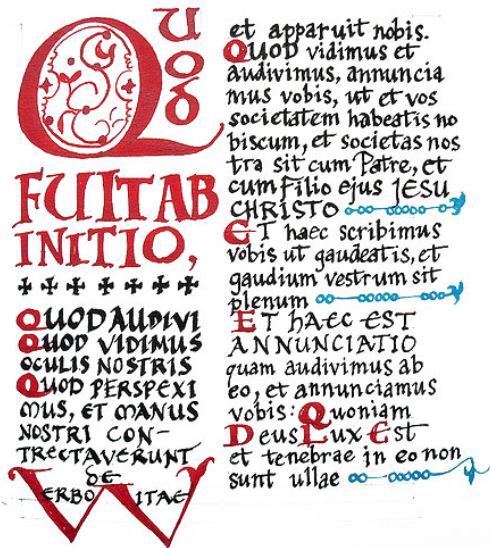 QUOD
FUIT AB
INITIO,
QUOD AUDIVI
QUOD VIDIMUS
OCULIS NOSTRIS
QUOD PERSPEXI
MUS, ET MANUS
NOSTRI CON-
TRECTAVERUNT
DE
VERBO VITAE
et apparuit nobis.
QUOD vidimus et
audivimus, annuncia
mus vobis, ut et vos
societatem habeatis no
biscum, et societas nos
tra sit cum Patre, et
cum Filio ejus JESU
CHRISTO
ET haec scribimus
vobis ut gaudeatis, et
gaudium vestrum sit
plenum
ET hAEC EST
ANNUNCIATIO
quam audivimus ab
eo, et annunciamus
vobis: Quoniam
Deus Lux Est
et tenebrae in eo non
sunt ullae